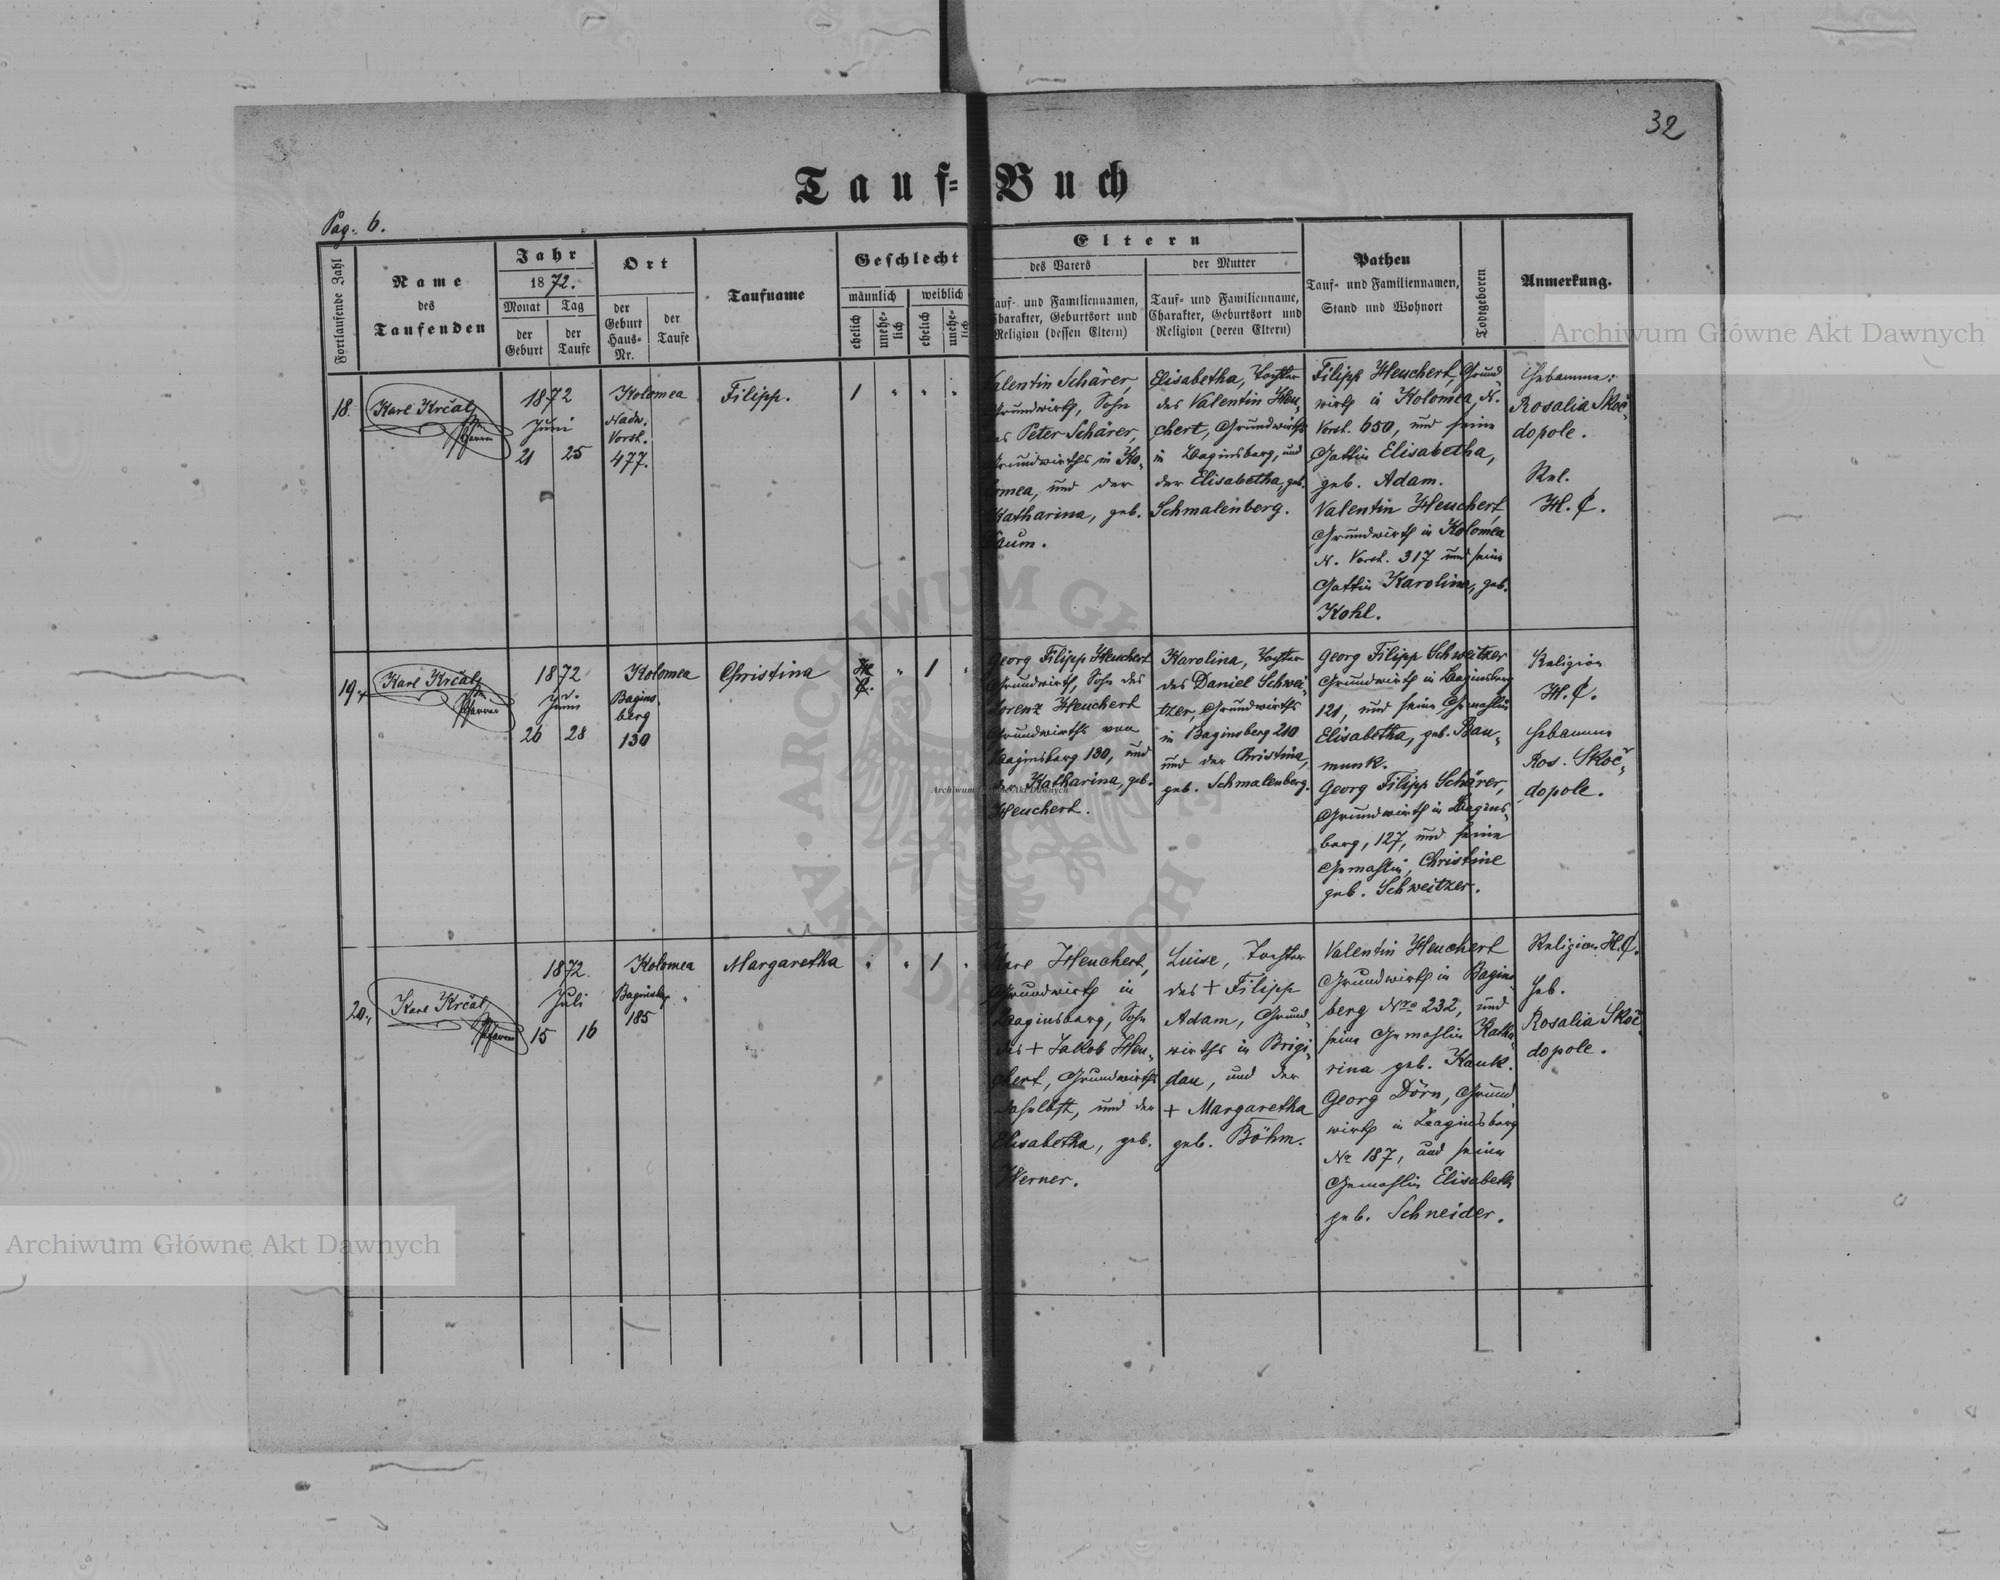 32
Tauf=Buch
Pag. 6.
Fortlaufende Zahl
Name
des
Taufenden
Jahr
1872.
Monat
Tag
der
Geburt
der
Taufe
Ort
der
Geburt
Haus-
Nr.
der
Taufe
Taufname
Geschlecht
männlich
weiblich
ehelich
unehe-
lich
ehelich
unehe-
lich
Eltern
des Vaters
der Mutter
auf- und Familiennamen,
Charakter, Geburtsort und
Religion (dessen Eltern)
Tauf- und Familienname,
Charakter, Geburtsort und
Religion (deren Eltern)
Pathen
Tauf- und Familiennamen,
Stand und Wohnort
Todtgeboren
Anmerkung.
18.
Karl Krčal
Pfarrer
1872
Juni
21
25
Kolomea
Nadw.
Vorst.
477.
Filipp.
1
alentin Schärer,
Grundwirth, Sohn
des Peter Schärer,
Grundwirths in Ko-
lomea, und der
Katharina, geb.
aum.
Elisabetha, Tochter
des Valentin Heu-
chert, Grundwirths
in Baginsberg, und
der Elisabetha, geb.
Schmalenberg.
Filipp Heuchert, Grund-
wirth in Kolomea, N.
Vorst. 650, und seine
Gattin Elisabetha,
geb. Adam.
Valentin Heuchert,
Grundwirth in Kolomea
N. Vorst. 317 und seine
Gattin Karolina, geb.
Kohl.
Hebamme:
Rosalia Skoč-
dopole.
Rel.
H. C.
19.
Karl Krčal,
Pfarrer
1872
Juni
26
28
Kolomea
Bagins-
berg
130
Christina
H.
C.
1
Georg Filipp Heuchert
Grundwirth, Sohn des
Lorenz Heuchert
Grundwirths von
Baginsberg 130, und
der Katharina, geb.
Heuchert.
Karolina, Tochter
des Daniel Schwei-
tzer, Grundwirths
in Baginsberg 210
und der Christina,
geb. Schmalenberg.
Georg Filipp Schweitzer
Grundwirth in Baginsberg
121, und seine Gemahlin
Elisabetha, geb. Bau-
munk.
Georg Filipp Schärer,
Grundwirth in Bagins-
berg, 127, und seine
Gemahlin, Christine
geb. Schweitzer.
Religion
H. C.
Hebamme
Ros. Skoč-
dopole.
20.,
Karl Krčal,
Pfarrer
1872.
Juli
15
16
Kolomea
Baginsbg.
185
Margaretha
1
Karl Heuchert,
Grundwirth in
Baginsberg, Sohn
des + Jakob Heu-
chert, Grundwirths
daselbst, und der
Elisabetha, geb.
Werner.
Luise, Tochter
des + Filipp
Adam, Grund-
wirths in Brigi-
dau, und der
+ Margaretha
geb. Böhm.
Valentin Heuchert
Grundwirth in Bagins-
berg Nro 232, und
seine Gemahlin Katha-
rina geb. Kauk.
Georg Dörn, Grund-
wirth in Baginsberg
No 187, und seine
Gemahlin Elisabeth
geb. Schneider.
Religion H. C.
Heb.
Rosalia Skoč-
dopole.
Archiwum Główne Akt Dawnych
Archiwum Główne Akt Dawnych
Archiwum Główne Akt Dawnych